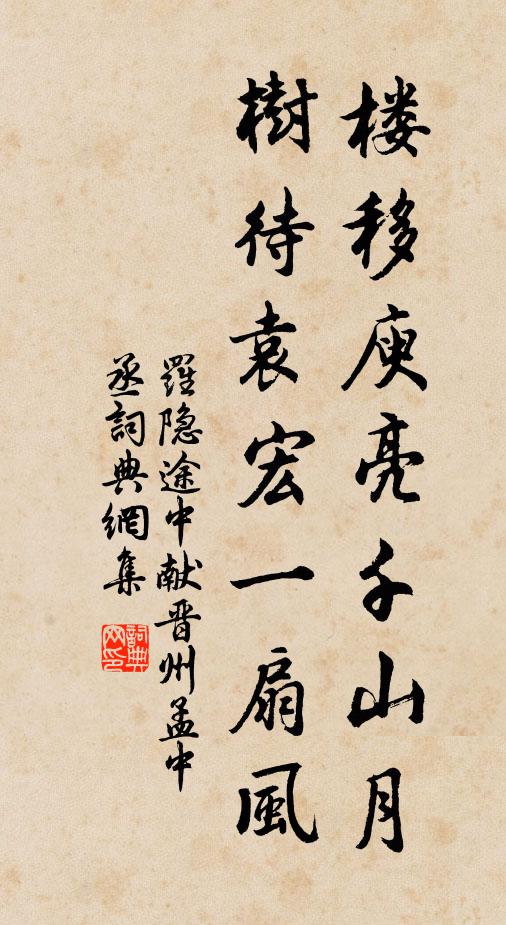 楼移庾亮千山月
樹待袁宏一扇風
羅隐途中献晋州孟中
丞詞典網集
詞典网印